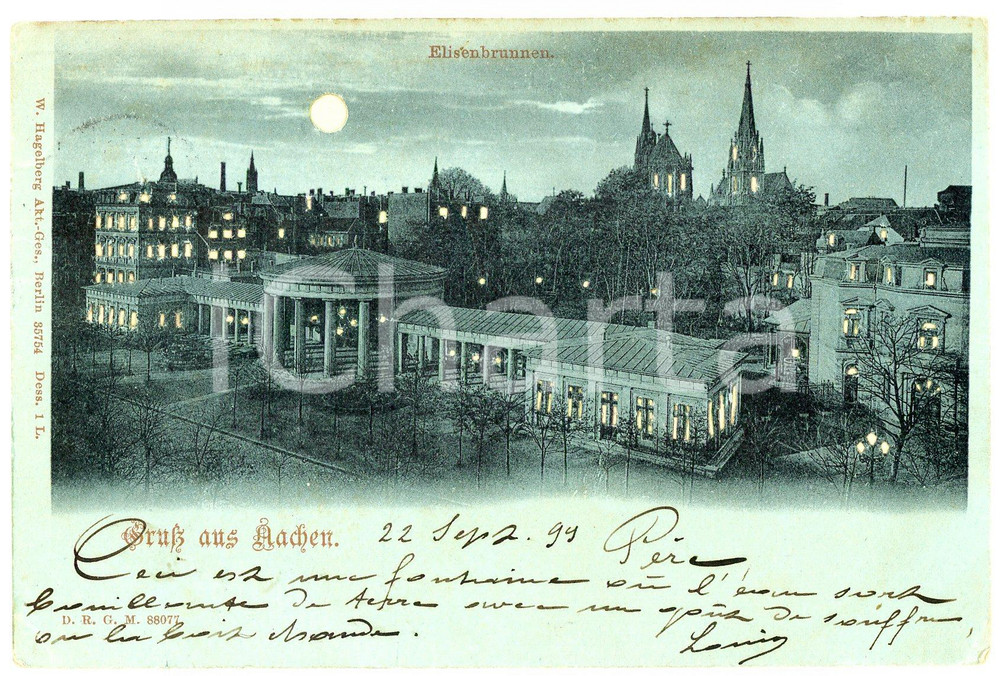 Elisenbrunnen.
W. Hagelberg Akt.-Ges., Berlin 35754 Dess. 1 L.
iCharta
Gruß aus Aachen.
22 Sept. 99 Père
Ceci est une fontaine où l'eau sort
bouillonante de terre avec un goût de souffre
D. R. G. M. 88077
on la boit chaude.
Louis